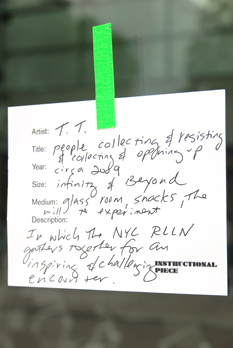 Artist: T. T.
Title: people collecting & resisting
& collecting & opening up
Year: circa 2009
Size: infinity & Beyond
Medium: glass room, snacks, The
will to experiment
Description:
In which the NYC RLLN
gathers together for an
inspiring & challenging
encounter.
INSTRUCTIONAL
PIECE